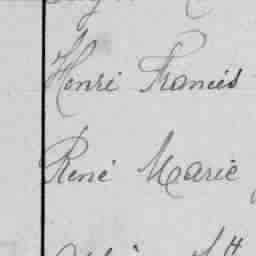 Henri Francis
René Marie